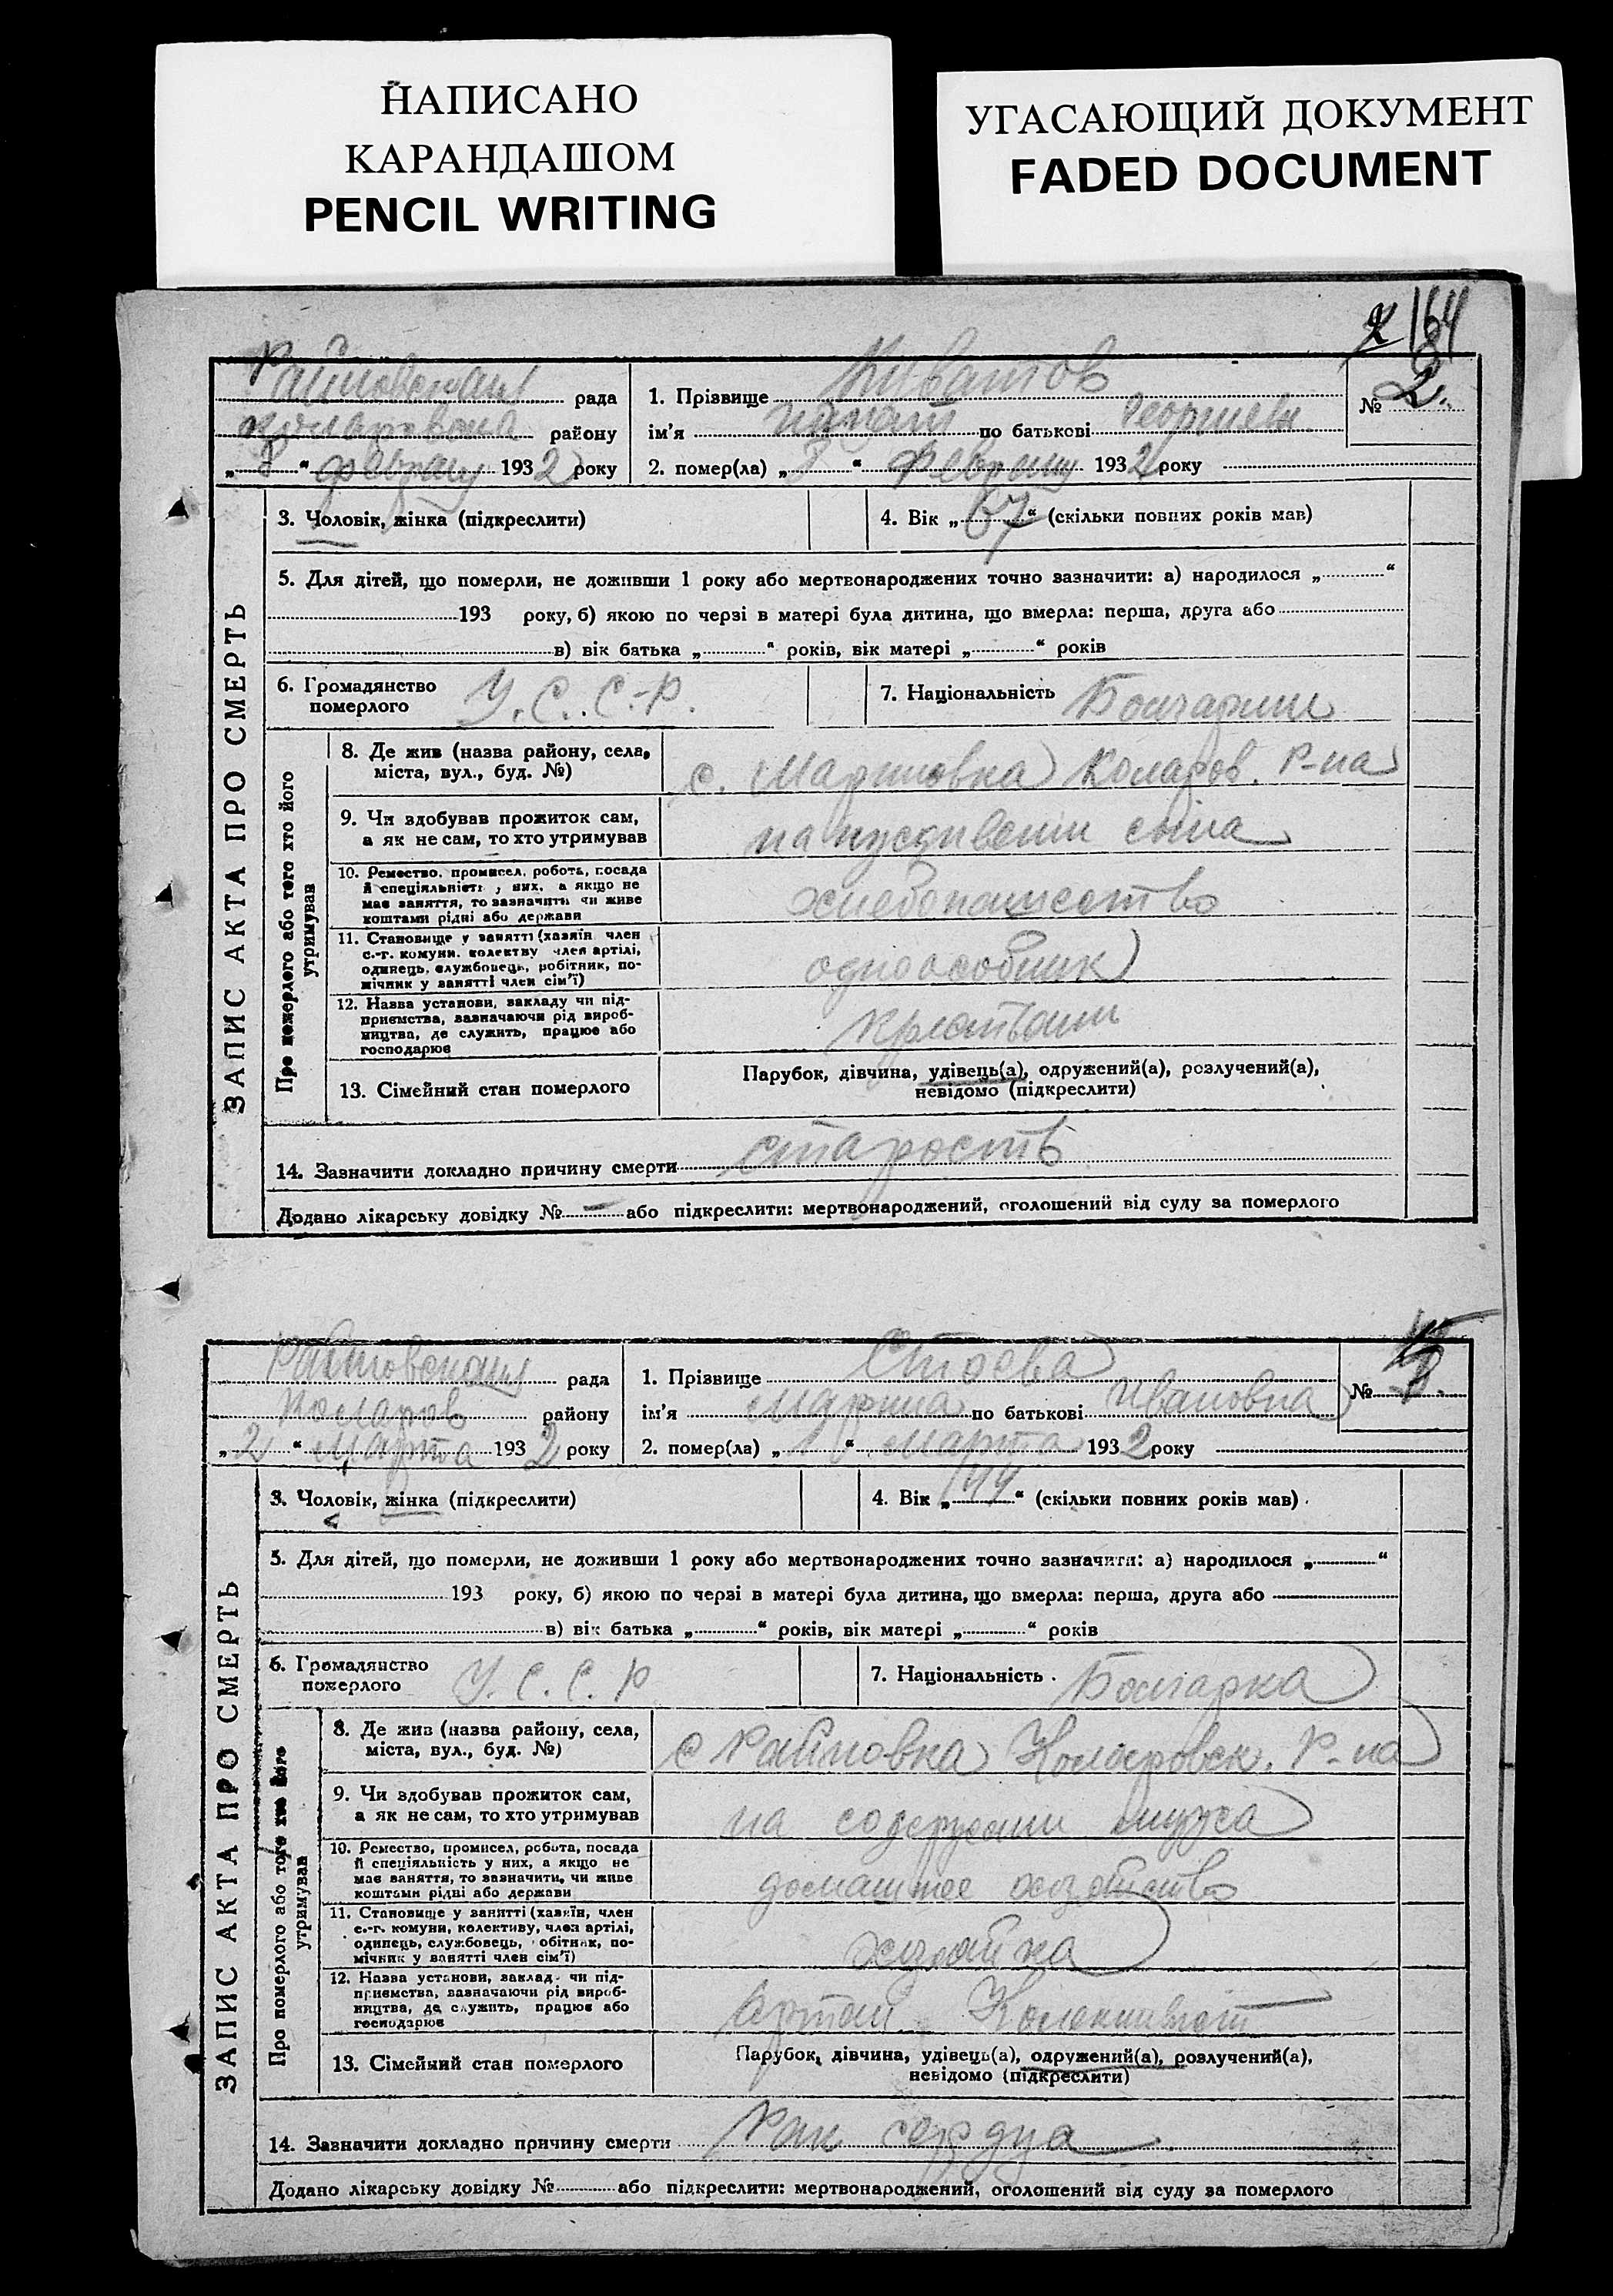 НАПИСАНО
КАРАНДАШОМ
PENCIL WRITING
УГАСАЮЩИЙ ДОКУМЕНТ
FADED DOCUMENT
164
рада
району
„8“ 1932 року
1. Прізвище
ім'я по батькові
2. помер(ла) „8“ 1932 року
№ 2.
ЗАПИС АКТА ПРО СМЕРТЬ
3. Чоловік, жінка (підкреслити)
4. Вік „67“ (скільки повних років мав)
5. Для дітей, що померли, не доживши 1 року або мертвонароджених точно зазначити: а) народилося „ “
193 року, б) якою по черзі в матері була дитина, що вмерла: перша, друга або
в) вік батька „ “ років, вік матері „ “ років
6. Громадянство
померлого
У.С.С.Р.
7. Національність
Про померлого або того хто його
утримував
8. Де жив (назва району, села,
міста, вул., буд. №)
с. Мариновка Коларов. Р-на
9. Чи здобував прожиток сам,
а як не сам, то хто утримував
сына
10. Ремество, промисел, робота, посада
й спеціяльність у них, а якщо не
має заняття, то зазначити чи живе
коштами рідні або держави
хлебопашество
11. Становище у занятті (хазяїн член
с.-г. комуни, колективу член артілі,
одинець, службовець, робітник, по-
мічник у занятті член сім'ї)
одноособник
12. Назва установи, закладу чи під-
приємства, зазначаючи рід вироб-
ництва, де служить, працює або
господарює
13. Сімейний стан померлого
Парубок, дівчина, удівець(а), одружений(а), розлучений(а),
невідомо (підкреслити)
14. Зазначити докладно причину смерти старость
Додано лікарську довідку № – або підкреслити: мертвонароджений, оголошений від суду за померлого
рада
Коларов району
„2“ Марта 1932 року
1. Прізвище Стоева
ім'я Марина по батькові Ивановна
2. помер(ла) „1“ Марта 1932 року
№
ЗАПИС АКТА ПРО СМЕРТЬ
3. Чоловік, жінка (підкреслити)
4. Вік „44“ (скільки повних років мав)
5. Для дітей, що померли, не доживши 1 року або мертвонароджених точно зазначити: а) народилося „ “
193 року, б) якою по черзі в матері була дитина, що вмерла: перша, друга або
в) вік батька „ “ років, вік матері „ “ років
6. Громадянство
померлого
У.С.С.Р
7. Національність Болгарка
Про померлого або того хто його
утримував
8. Де жив (назва району, села,
міста, вул., буд. №)
с Райновка Коларовск. Р-на
9. Чи здобував прожиток сам,
а як не сам, то хто утримував
на содержании мужа
10. Ремество, промисел, робота, посада
й спеціяльність у них, а якщо не
має заняття, то зазначити, чи живе
коштами рідні або держави
домашнее
11. Становище у занятті (хазяїн, член
с.-г. комуни, колективу, член артілі,
одинець, службовець, робітник, по-
мічник у занятті член сім'ї)
хозяйка
12. Назва установи, заклад чи під-
приємства, зазначаючи рід вироб-
ництва, де служить, працює або
господарює
13. Сімейний стан померлого
Парубок, дівчина, удівець(а), одружений(а), розлучений(а),
невідомо (підкреслити)
14. Зазначити докладно причину смерти Рак
Додано лікарську довідку № або підкреслити: мертвонароджений, оголошений від суду за померлого